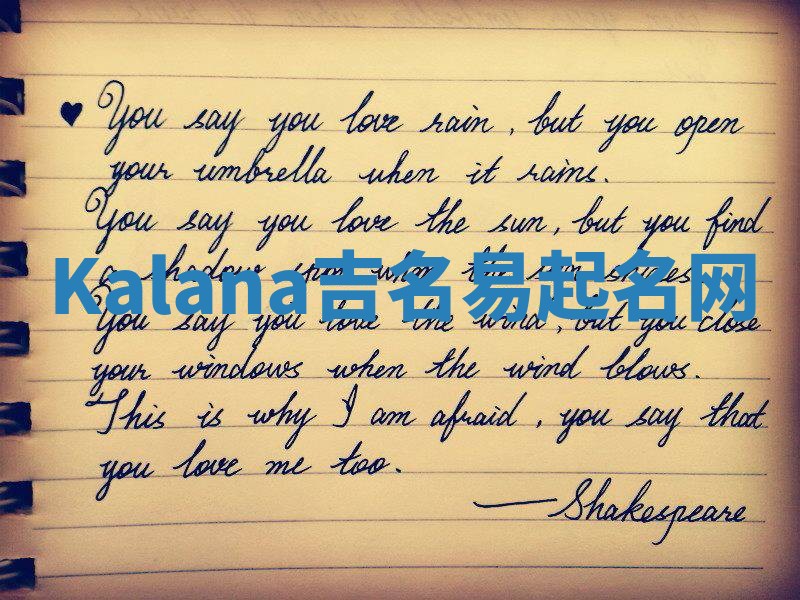 ♥ You say you love rain, but you open
your umbrella when it rains.
You say you love the sun, but you find
a shadow spot when the sun shines.
Kalana吉名易起名网
You say you love the wind, but you close
your windows when the wind blows.
This is why I am afraid, you say that
you love me too.
—Shakespeare